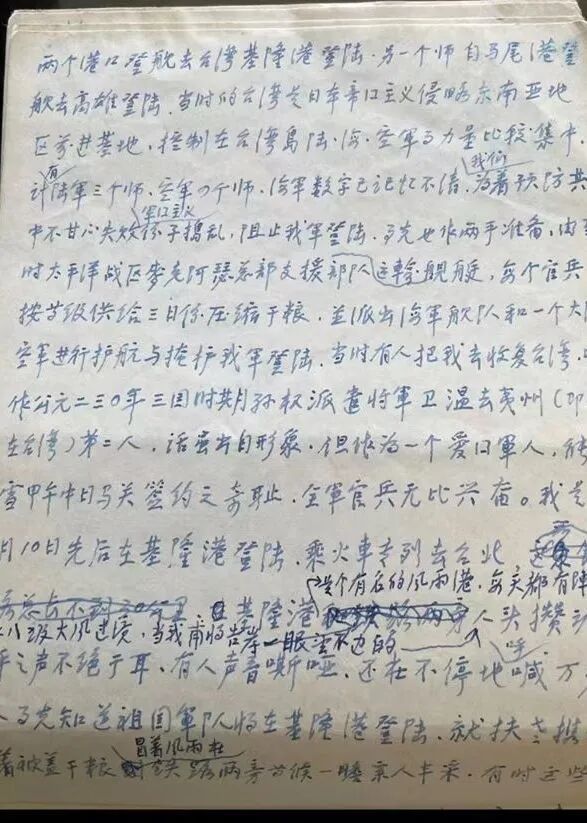 两个港口登舰去台湾基隆港登陆.另一个师自马尾港登
舰去高雄登陆.当时的台湾是日本帝国主义侵略东南亚地
区前进基地,控制在台湾島陆.海.空軍力量比较集中.
有
我们
计陆軍三个师、空軍个师.海軍数字已记忆不清.为着予防其
軍囯主义
中不甘心失败份子搗乱,阻止我軍登陆.予先也作两手准备,由
时太平洋战区麥克阿瑟总部支援部队运輸舰艇,每个官兵
按等级供给三日份压缩干粮.並派出海軍舰队和一个大
空軍进行护航与掩护我軍登陆.当时有人把我去收复台湾.
作公元二三〇年三囯时期孙权派遣将軍卫温去夷州(即
在台湾)第二人,话虽出自形象.但作为一个爱囯軍人,能
雪甲午中日马关签约之奇耻.全軍官兵无比兴奋。我是
月10日先后在基隆港登陆.乘火車专列去台北
是个有名的风雨港.每天都有陣
基隆港 人头攒动
八级大风过境,当我甫将登岸一眼望不边的
呼
乎之声不绝于耳.有人声音嘶哑.还在不停地喊万
予先知道祖囯軍队将在基隆港登陆.就扶老携
冒着风雨在
着被盖干粮 铁路两旁等候一睹亲人丰采.有时这些